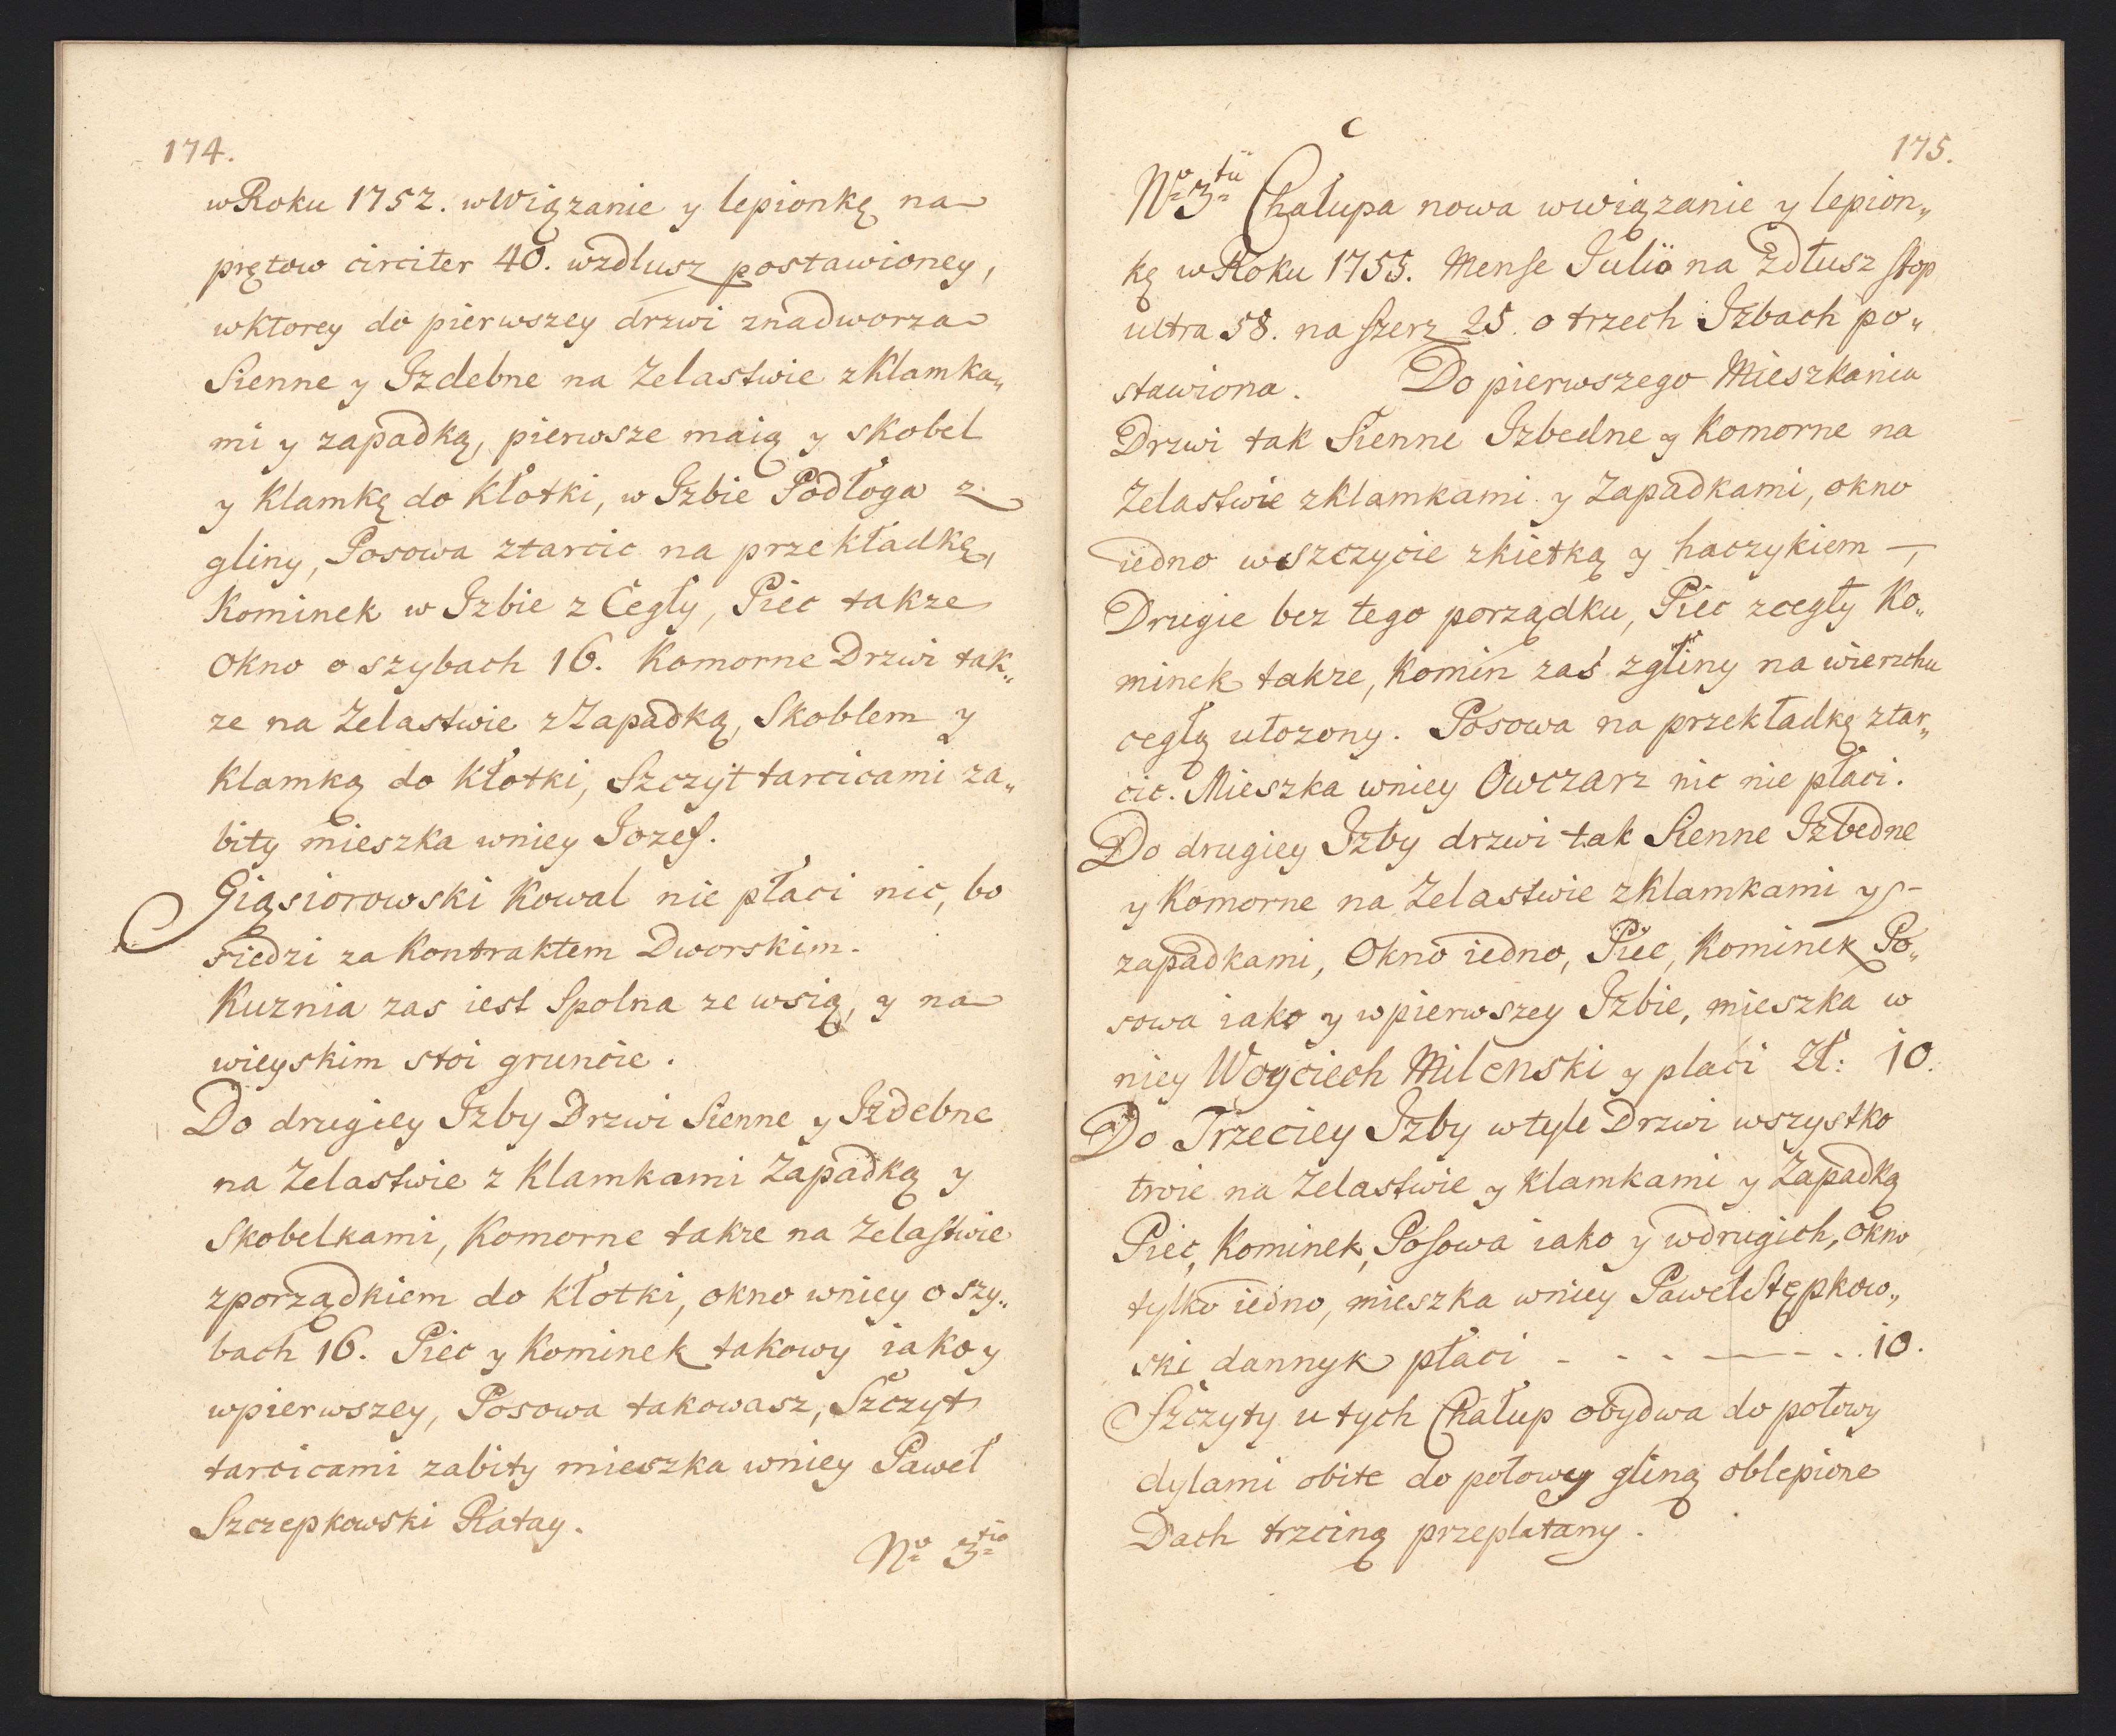 174.
w Roku 1752. w Wiązanie y lepionkę na
prętow circiter 40. wzdlusz postawioney,
wktorey do pierwszey drzwi znadworza
Sienne y Izdebne na Zelastwie zKlamka„
mi y zapadką, pierwsze maią y skobel
y Klamkę do Kłotki, w Izbie Podłoga z
gliny, Posowa ztarcic na przekładkę,
Kominek w Izbie z Cegły, Piec takze
Okno o szybach 16. Komorne Drzwi tak„
ze na Zelastwie z Zapadką, Skoblem y
Klamką do Kłotki, Szczyt tarcicami za„
bity mieszka wniey Iozef.
Giąsiorowski Kowal nie płaci nic, bo
siedzi za Kontraktem Dworskim.
Kuznia zas iest Spolna ze wsią, y na
wieyskim stoi gruncie.
Do drugiey Izby Drzwi Sienne y Izdebne
na Zelastwie z Klamkami Zapadką y
Skobelkami, Komorne takze na Zelastwie
zporządkiem do Kłotki, okno wniey o szy„
bach 16. Piec y Kominek takowy iako y
wpierwszey, Posowa takowasz, Szczyt
tarcicami zabity mieszka wniey Paweł
Szczepkowski Ratay.
No 3tio
C
175.
No 3tii Chałupa nowa wwiązanie y lepion„
kę w Roku 1755. Mense Julio na Zdłusz stop
ultra 58. na szerz 25. o trzech Izbach po„
stawiona. Do pierwszego Mieszkania
Drzwi tak Sienne Izbedne y Komorne na
Zelastwie zKlamkami y Zapadkami, okno
iedno wszczycie zkietką y haczykiem —,
Drugie bez tego porządku, Piec zcegły Ko„
minek takze, Komin zaś zgliny na wierzchu
cegłą ułozony. Posowa na przekładkę ztar„
cic. Mieszka wniey Owczarz nic nie płaci.
Do drugiey Izby drzwi tak Sienne Izbedne
y Komorne na Zelastwie zKlamkami y -
zapadkami, Okno iedno, Piec, Kominek Po„
sowa iako y wpierwszey Izbie, mieszka w
niey Woyciech Milenski y placi Zł: 10.
Do Trzeciey Izby wtyle Drzwi wszystko
troie na Zelastwie y Klamkami y Zapadką
Piec, Kominek, Posowa iako y wdrugich, okno
tylko iedno, mieszka wniey Pawel Stępkow„
ski dannyk płaci - - - - — - - . . 10.
Szczyty u tych Chałup obydwa do połowy
dylami obite do połowy gliną oblepione
Dach trzciną przeplatany.